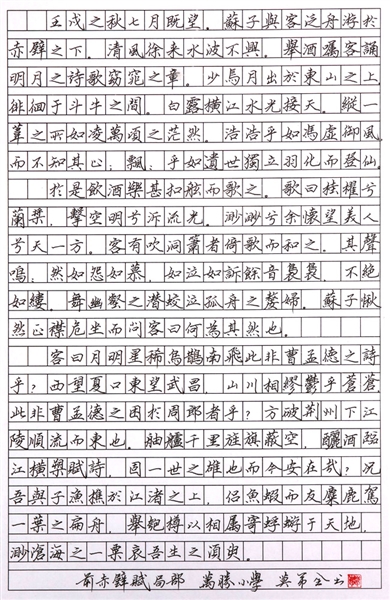 壬戌之秋七月既望。蘇子與客泛舟游於
赤壁之下。清風徐来水波不興。舉酒屬客誦
明月之诗歌窈窕之章。少焉月出於東山之上
徘徊于斗牛之間。白露横江水光接天。縱一
葦之所如凌萬頃之茫然。浩浩乎如馮虚御風
而不知其止；飄；乎如遺世獨立羽化而登仙
於是飲酒樂甚扣舷而歌之。歌曰桂櫂兮
蘭槳。擊空明兮泝流光。渺渺兮余懷望美人
兮天一方。客有吹洞簫者倚歌而和之。其聲
嗚；然如怨如慕。如泣如訴餘音裊裊。不絶
如縷。舞幽壑之潜蛟泣孤舟之嫠婦。蘇子愀
然正襟危坐而問客曰何為其然也。
客曰月明星稀烏鵲南飛此非曹孟德之詩
乎？西望夏口東望武昌。山川相繆鬱乎蒼蒼
此非曹孟德之困於周郎者乎？方破荆州下江
陵順流而東也。舳艫千里旌旗蔽空。釃酒臨
江横槊賦詩。固一世之雄也而今安在哉？况
吾與子漁樵於江渚之上。侣魚蝦而友麋鹿駕
一葉之扁舟。舉匏樽以相属寄蜉蝣于天地。
渺滄海之一粟哀吾生之須臾。
前赤壁賦局部 萬勝小學 莫第